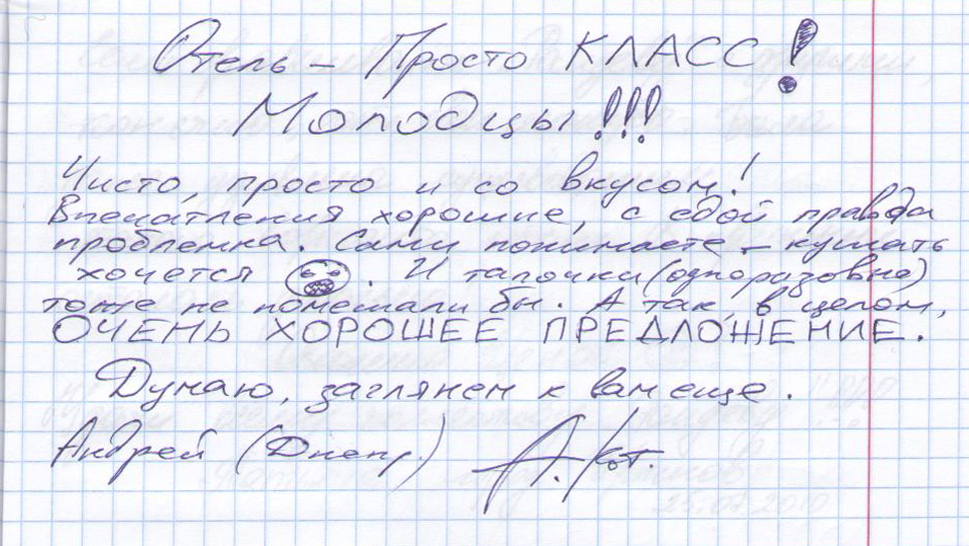 Отель – Просто КЛАСС!
Молодцы!!!
Чисто, просто и со вкусом!
Впечатления хорошие, с едой правда
проблемка. Сами понимаете – кушать
хочется . И тапочки (одноразовые)
тоже не помешали бы. А так, в целом,
ОЧЕНЬ ХОРОШЕЕ ПРЕДЛОЖЕНИЕ.
Думаю, заглянем к вам еще.
Андрей (Днепр.) А. Кот.